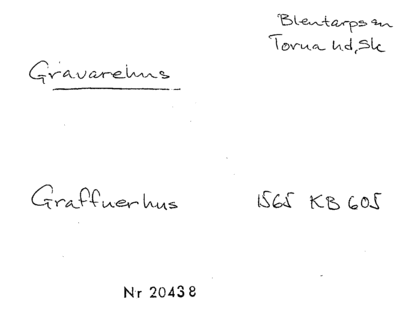 Blentarps sn
Torna hd, Sk
Gravarehus
Graffuerhus 1565 KB 605
Nr 20438